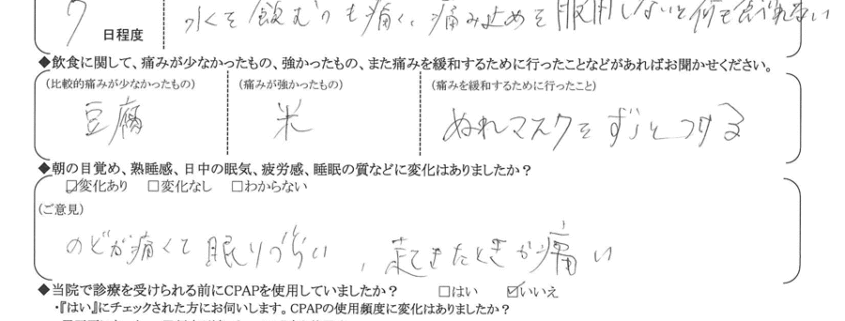 7 日程度 水を飲むのも痛く、痛み止めを服用しないと何も食べれない
◆飲食に関して、痛みが少なかったもの、強かったもの、また痛みを緩和するために行ったことなどがあればお聞かせください。
(比較的痛みが少なかったもの) (痛みが強かったもの) (痛みを緩和するために行ったこと)
豆腐 米 ぬれマスクをずっとつける
◆朝の目覚め、熟睡感、日中の眠気、疲労感、睡眠の質などに変化はありましたか？
☑変化あり □変化なし □わからない
(ご意見)
のどが痛くて眠りづらい、起きたときが痛い
◆当院で診療を受けられる前にCPAPを使用していましたか？ □はい ☑いいえ
・『はい』にチェックされた方にお伺いします。CPAPの使用頻度に変化はありましたか？